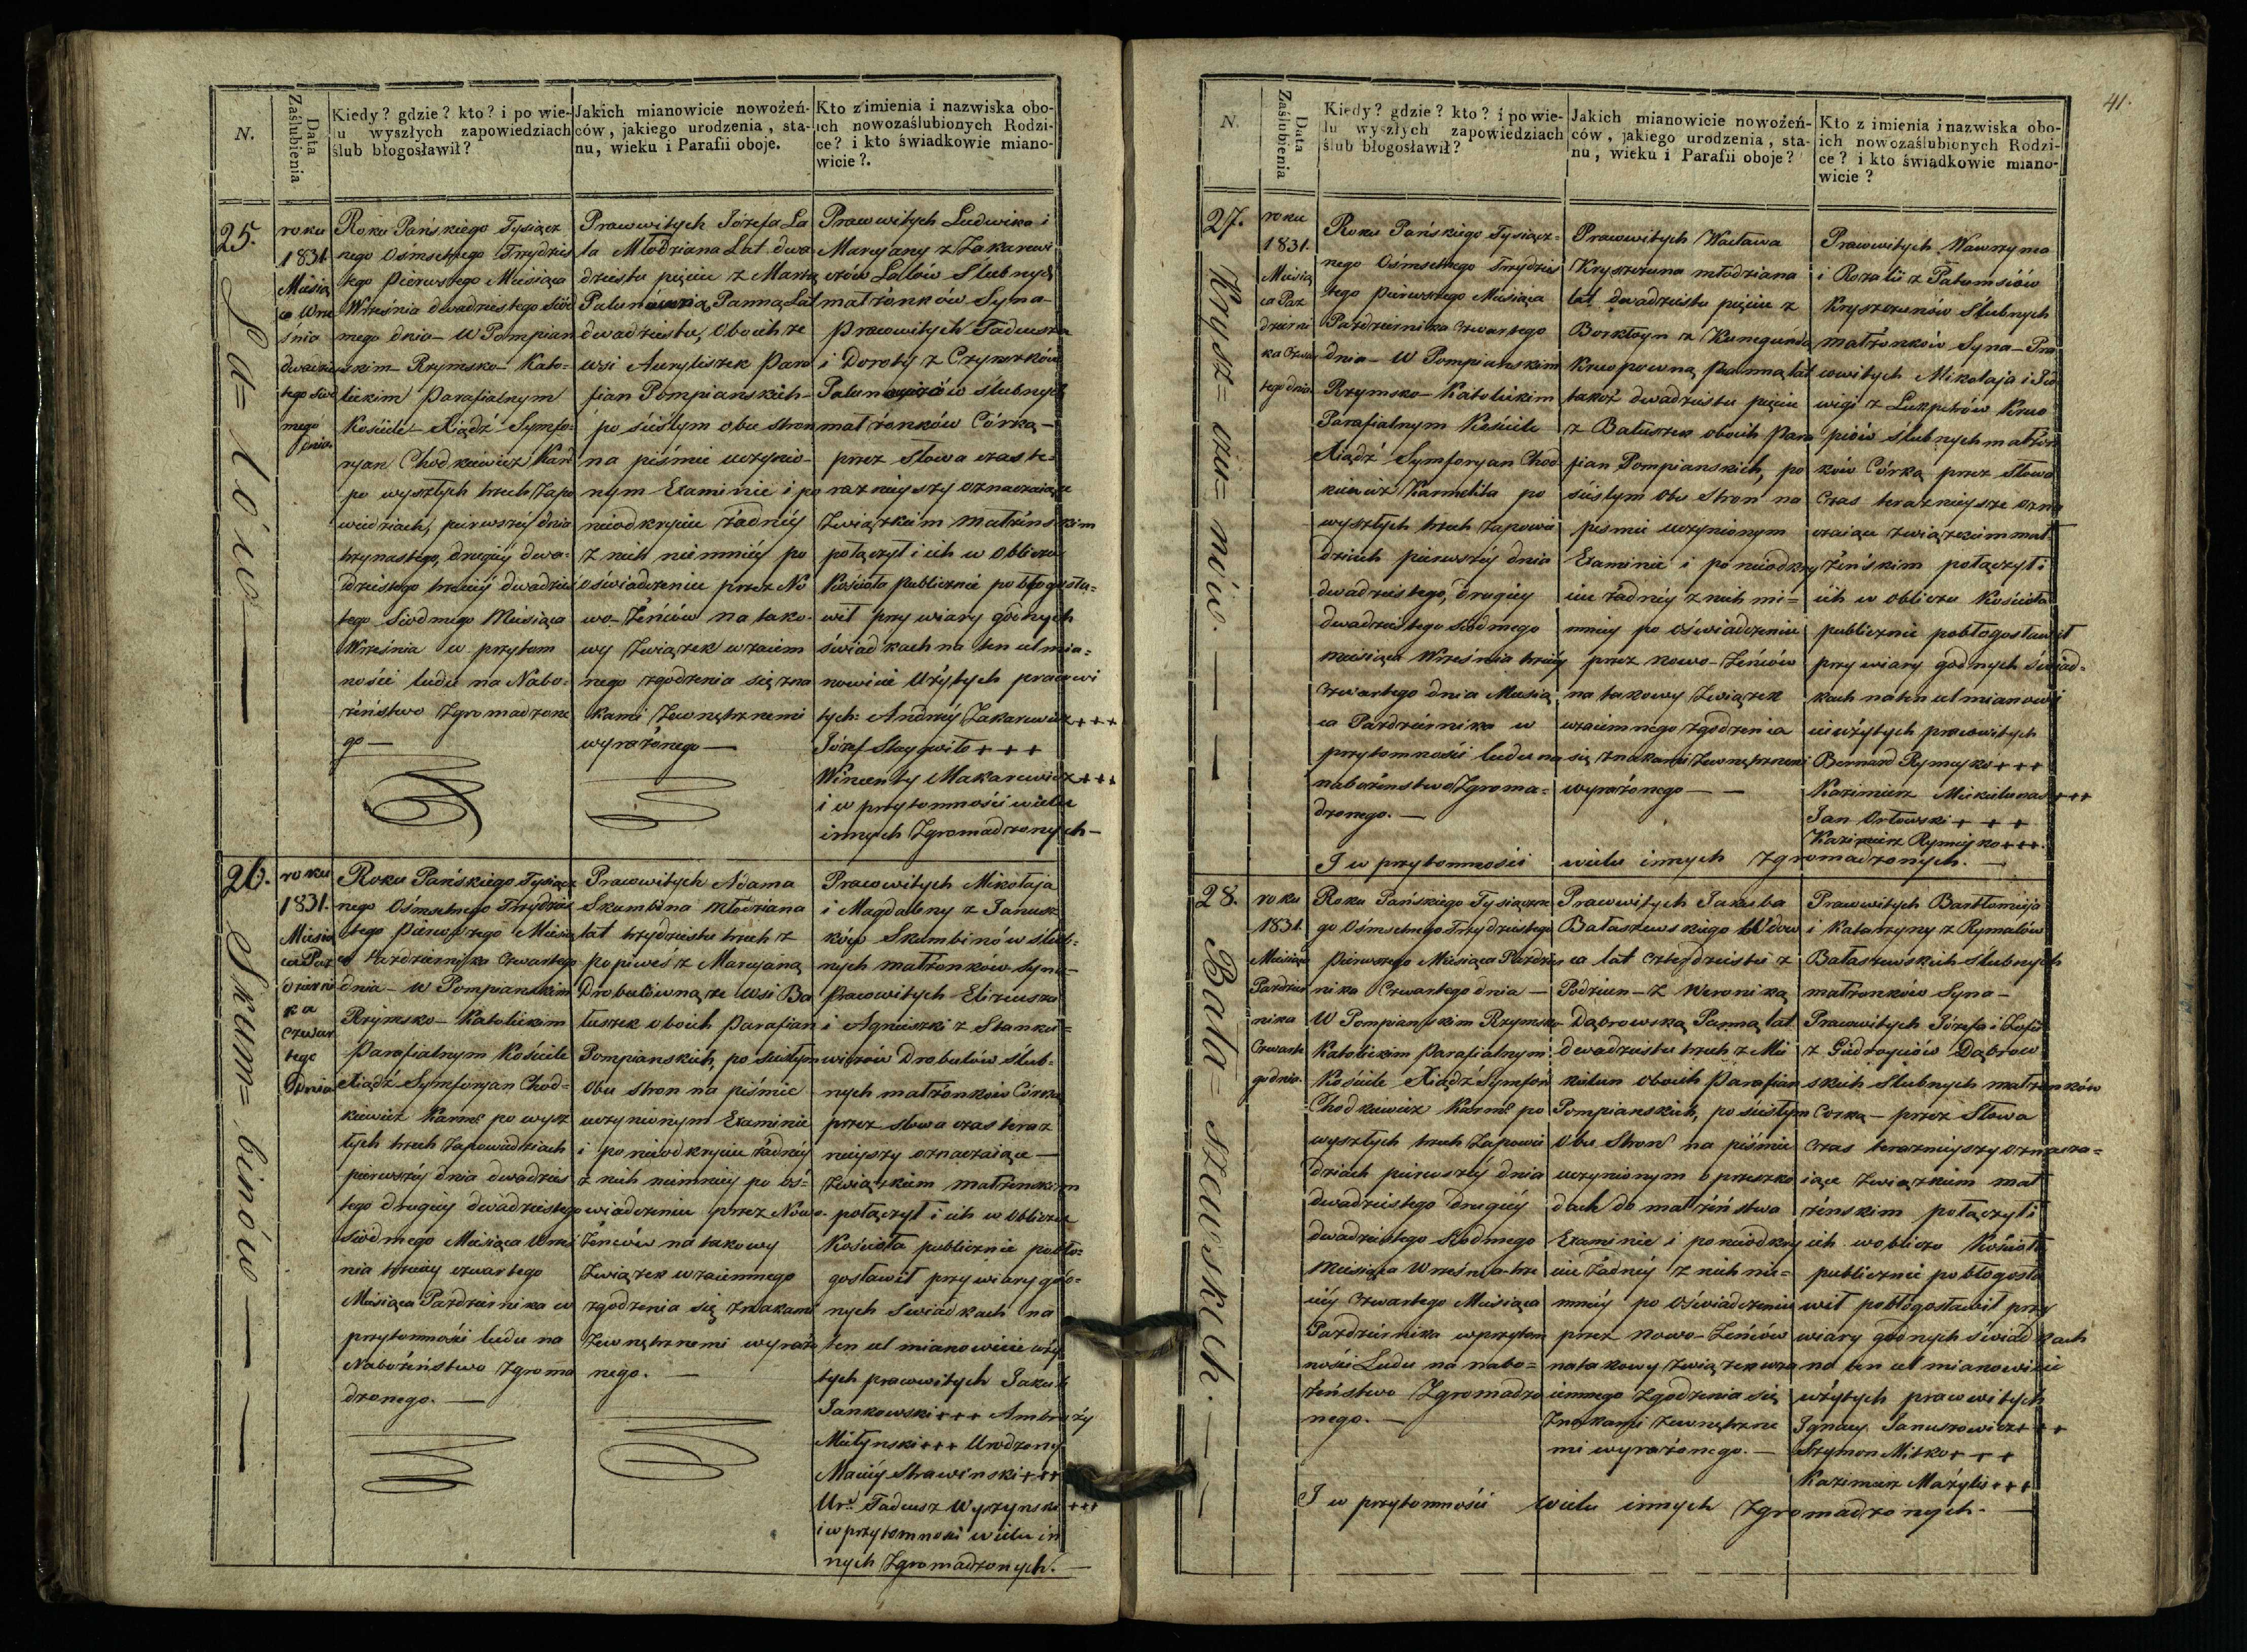 N.
Data Zaślubienia
Kiedy? gdzie? kto? i po wie-
lu wyszłych zapowiedziach
ślub błogosławił?
Jakich mianowicie nowożeń-
ców, jakiego urodzenia, sta-
nu, wieku i Parafii oboje.
Kto z imienia i nazwiska obo-
ich nowozaślubionych Rodzi-
ce? i kto świadkowie miano-
wicie?.
25.
La=łów
roku
1831.
Miesią
ca Wrze
śnia
dwadzies
tego siód
mego
dnia
Roku Pańskiego Tysiącz
nego Ośmsetnego Trzydzies
tego Pierwszego Miesiąca
Września dwadziestego Siód
mego dnia – W Pompian
skim – Rzymsko – Kato=
lickim Parafialnym
Kościele – Xiądz Symfo=
ryan Chodkiewicz Kard
po wyszłych trzech Zapo
wiedziach, pierwszéy dnia
trzynastego, drugiéy dwa=
dziestego trzeciéy dwadzies
tego Siodmego Miesiąca
Września w przytom
ności ludu na Nabo=
żeństwo Zgromadzone
go —
Prawowitych Józefa La
ła Młodziana Lat dwa
dziestu pięciu z Martą
Panną Lat
dwadziestu, Oboich ze
wsi Auryliszek Para
fian Pompianskich –
po ścisłym obu stron
na piśmie uczynio=
nym Examinie i po
nieodkryciu żadnéy
z nich niemniéy po
oświadczeniu przez No
wo-Żeńców na tako=
wy Związek wzaiem
nego zgodzenia się zna
kami Zewnętrznemi
wyrażonego —
Prawowitych Ludwika i
Maryany z Zakarewi
czów Lałów Ślubnych
małżonków Syna –
Prawowitych Tadeusza
i Doroty z
ślubnych
małżonków Córką –
przez Słowa czas te=
raznieyszy oznaczaiące
Związkiem Małżeńskim
połączył i ich w Obliczu
Kościoła Publicznie pobłogosła=
wił przy wiary godnych
świadkach na ten cel mia=
nowicie Użytych prawowi
tych: Andrzéy Zakarewicz +++
Józef Staygwiło +++
Wincenty Makarewicz +++
i w przytomności wielu
innych Zgromadzonych –
26.
Skum=binów
roku
1831.
Miesią
ca Paz
dzierni
ka
Czwar
tego
Dnia
Roku Pańskiego Tysiącz
nego Ośmsetnego Trzydzies
tego Pierwszego Miesią
ca Pazdziernika Czwartego
dnia – w Pompianskim
Rzymsko – Katolickim
Parafialnym Kościele
Xiądz Symforyan Chod=
kiewicz Karme po wysz
łych trzech Zapowiedziach
pierwszéy dnia dwadzies
tego drugiéy dwadziestego
siódmego Miesiąca Wrześ
nia trzeciéy czwartego
Miesiąca Pazdziernika w
przytomności ludu na
Nabożeństwo Zgroma
dzonego. —
Prawowitych Adama
Skumbina Młodziana
lat trzydziestu trzech z
z Maryanną
Drobulówną ze Wsi Ba
łuszek oboich Parafian
Pompianskich, po ścisłym
Obu stron na piśmie
uczynionym Examinie
i po nieodkryciu żadnéy
z nich niemniéy po oś=
wiadczeniu przez Nowo=
Żeńców na takowy
Związek wzaiemnego
zgodzenia się znakami
Zewnętrznemi wyrażo
nego. —
Prawowitych Mikołaja
i Magdaleny z Janusz
ków Skumbinów ślub=
nych małżonków Syna –
Prawowitych Elizeusza
i Agnieszki z Stanku=
wiczów Drobulów ślub=
nych małżonków Córką
przez słowa czas teraz
nieyszy oznaczaiące —
Związkiem małżenskim
połączył i ich w Obliczu
Kościoła publicznie pobło=
gosławił przy wiary god=
nych Swiadkach na
ten cel mianowicie uży
tych prawowitych Jakub
Jankowski +++ Ambroży
Milynski +++ Urodzony
Maciéy Strawinski +++
Urd Tadeusz Wyszynski +++
i w przytomności wielu in
nych Zgromadzonych. —
41.
N.
Data Zaślubienia
Kiedy? gdzie? kto? i po wie-
lu wyszłych zapowiedziach
ślub błogosławił?
Jakich mianowicie nowożeń-
ców, jakiego urodzenia, sta-
nu, wieku i Parafii oboje?
Kto z imienia i nazwiska obo-
ich nowozaślubionych Rodzi-
ce? i kto świadkowie miano-
wicie?
27.
Krysz=czu=nów.
roku
1831.
Miesią
ca Paz
dzierni
ka Czwar
tego dnia
Roku Pańskiego Tysiącz=
nego Ośmsetnego Trzydzies
tego Pierwszego Miesiąca
Pazdziernika Czwartego
dnia – W Pompianskim
Rzymsko – Katolickim
Parafialnym Kościele
Xiądz Symforyan Chod
kiewicz Karmelita po
wyszłych trzech zapowie
dziach pierwszéy dnia
dwadziestego, drugiéy
dwadziestego siodmego
miesiąca Września trzeciéy
Czwartego dnia Miesią
ca Pazdziernika w
przytomności ludu na
nabożenstwo Zgroma=
dzonego. —
Prawowitych Wacława
Kryszczuna młodziana
lat dwadziestu pięciu z
Borkłoyn z Kunegundą
Krupowną Panną lat
takoż dwadziestu pięciu
z Bałuszek oboich Para
fian Pompianskich, po
ścisłym Obu stron na
pismie uczynionym
Examinie i po nieodkry
ciu żadnéy z nich nie=
mniéy po oświadczeniu
przez nowo-Żeńców
na takowy Związek
wzaiemnego zgodzenia
się znakami Zewnętrznemi
wyrażonego — —
Prawowitych Wawrzyna
i Rozalii z Patumsiów
Kryszczunów Ślubnych
małżonków Syna – Pra
wowitych Mikołaja i Jad
wigi z Krup
piów ślubnych małżon
ków Córką przez Słowa
Czas teraznieysze ozna
czaiące związkiem mał
żeńskim połączył i
ich w obliczu Kościoła
publicznie pobłogosławił
przy wiary godnych świad=
kach na ten cel mianowi
cie użytych prawowitych
Bernard Rymeyko +++
Kazimierz Mikielunas +++
Jan Orłowski +++
Kazimierz Rymeyko +++.
I w przytomności wielu innych Zgromadzonych. —
28.
Bała=szewskich.
roku
1831.
Miesiąca
Pazdzier
nika
Czwarte
go dnia
Roku Pańskiego Tysiączne
go Ośmsetnego Trzydziestego
Pierwszego Miesiąca Pazdzier
nika Czwartego dnia —
W Pompianskim Rzymsko
Katolickim Parafialnym
Kościele Xiądz Symfor
Chodkiewicz Karme po
wyszłych trzech Zapowie
dziach pierwszéy dnia
dwadziestego drugiéy
dwadziestego Siodmego
Miesiąca Września trze
ciéy Czwartego Miesiąca
Pazdziernika w przytom
ności Ludu na nabo=
żeństwo Zgromadzo
nego. —
Prawowitych Jakuba
Bałaszewskiego Wdow
ca lat Czterdziestu z
Podziun – z Weroniką
Dąbrowską Panną lat
dwadziestu trzech z Mi
kielun oboich Parafian
Pompianskich, po ścisłym
Obu Stron na piśmie
uczynionym o przeszko
dach do małżeństwa
Examinie i po nieodkry
ciu żadnéy z nich nie=
mniéy po Oświadczeniu
przez nowo-Żeńców
na takowy Związek wza
iemnego Zgodzenia się
Znakami zewnętrzne
mi wyrażonego. —
Prawowitych Bartłomieja
i Katarzyny z Rymalów
Bałaszewskich Ślubnych
małżonków Syna –
Prawowitych Józefa i Zofii
z Giedroyciów Dąbrow
skich Ślubnych małżonków
Corką – przez Słowa
Czas teraznieyszy oznacza=
iące Związkiem mał
żeńskim połączył i
ich w obliczu Kościoła
publicznie pobłogosła
wił pobłogosławił przy
wiary godnych świadkach
na ten cel mianowicie
użytych prawowitych
Ignacy Januszowicz +++
Szymon Mitko +++
Kazimierz Mażylis +++
I w przytomności wielu innych Zgromadzonych. —